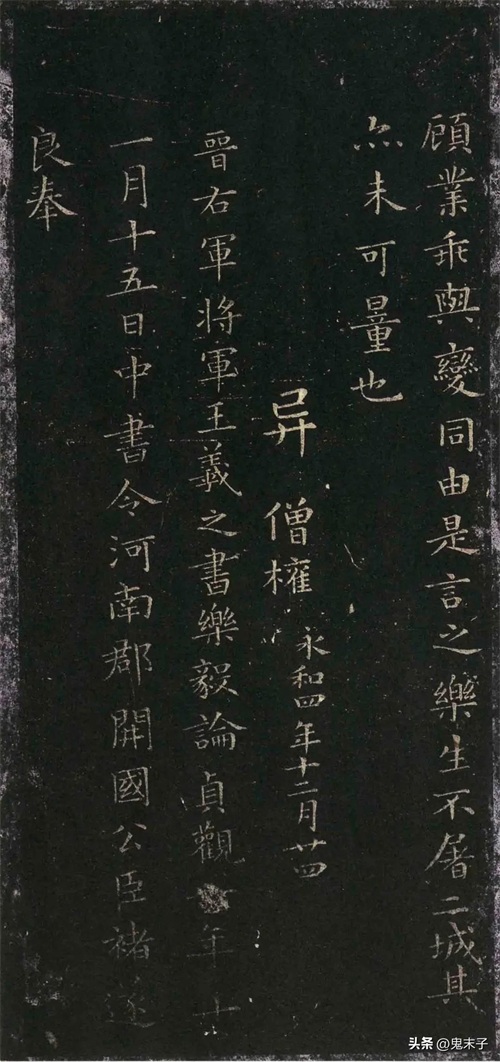 顧業乖與變同由是言之樂生不屠二城其
亦未可量也
异 僧權
永和四年十二月廿四
晉右軍將軍王羲之書樂毅論貞觀年十
一月十五日中書令河南郡開國公臣褚遂
良奉
头条 @鬼末子